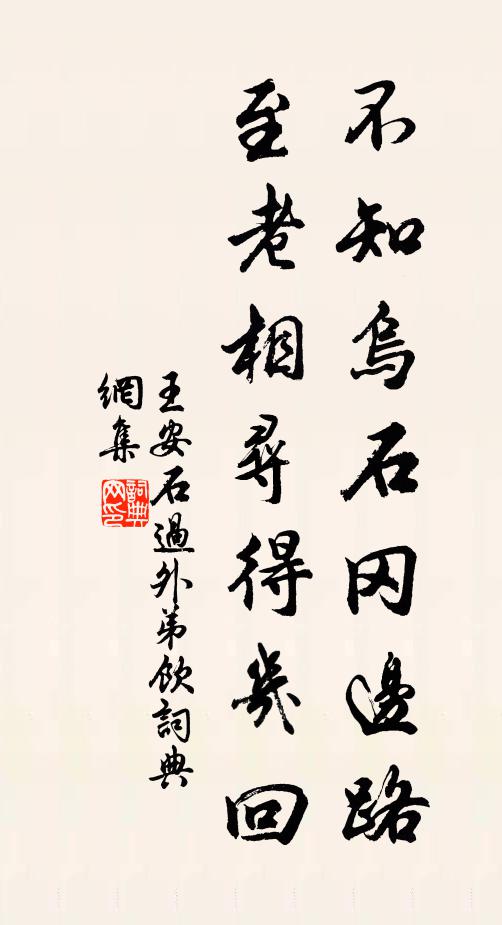 不知烏石冈邊路
至老相尋得幾回
王安石過外弟飲詞典
網集
詞典
网印